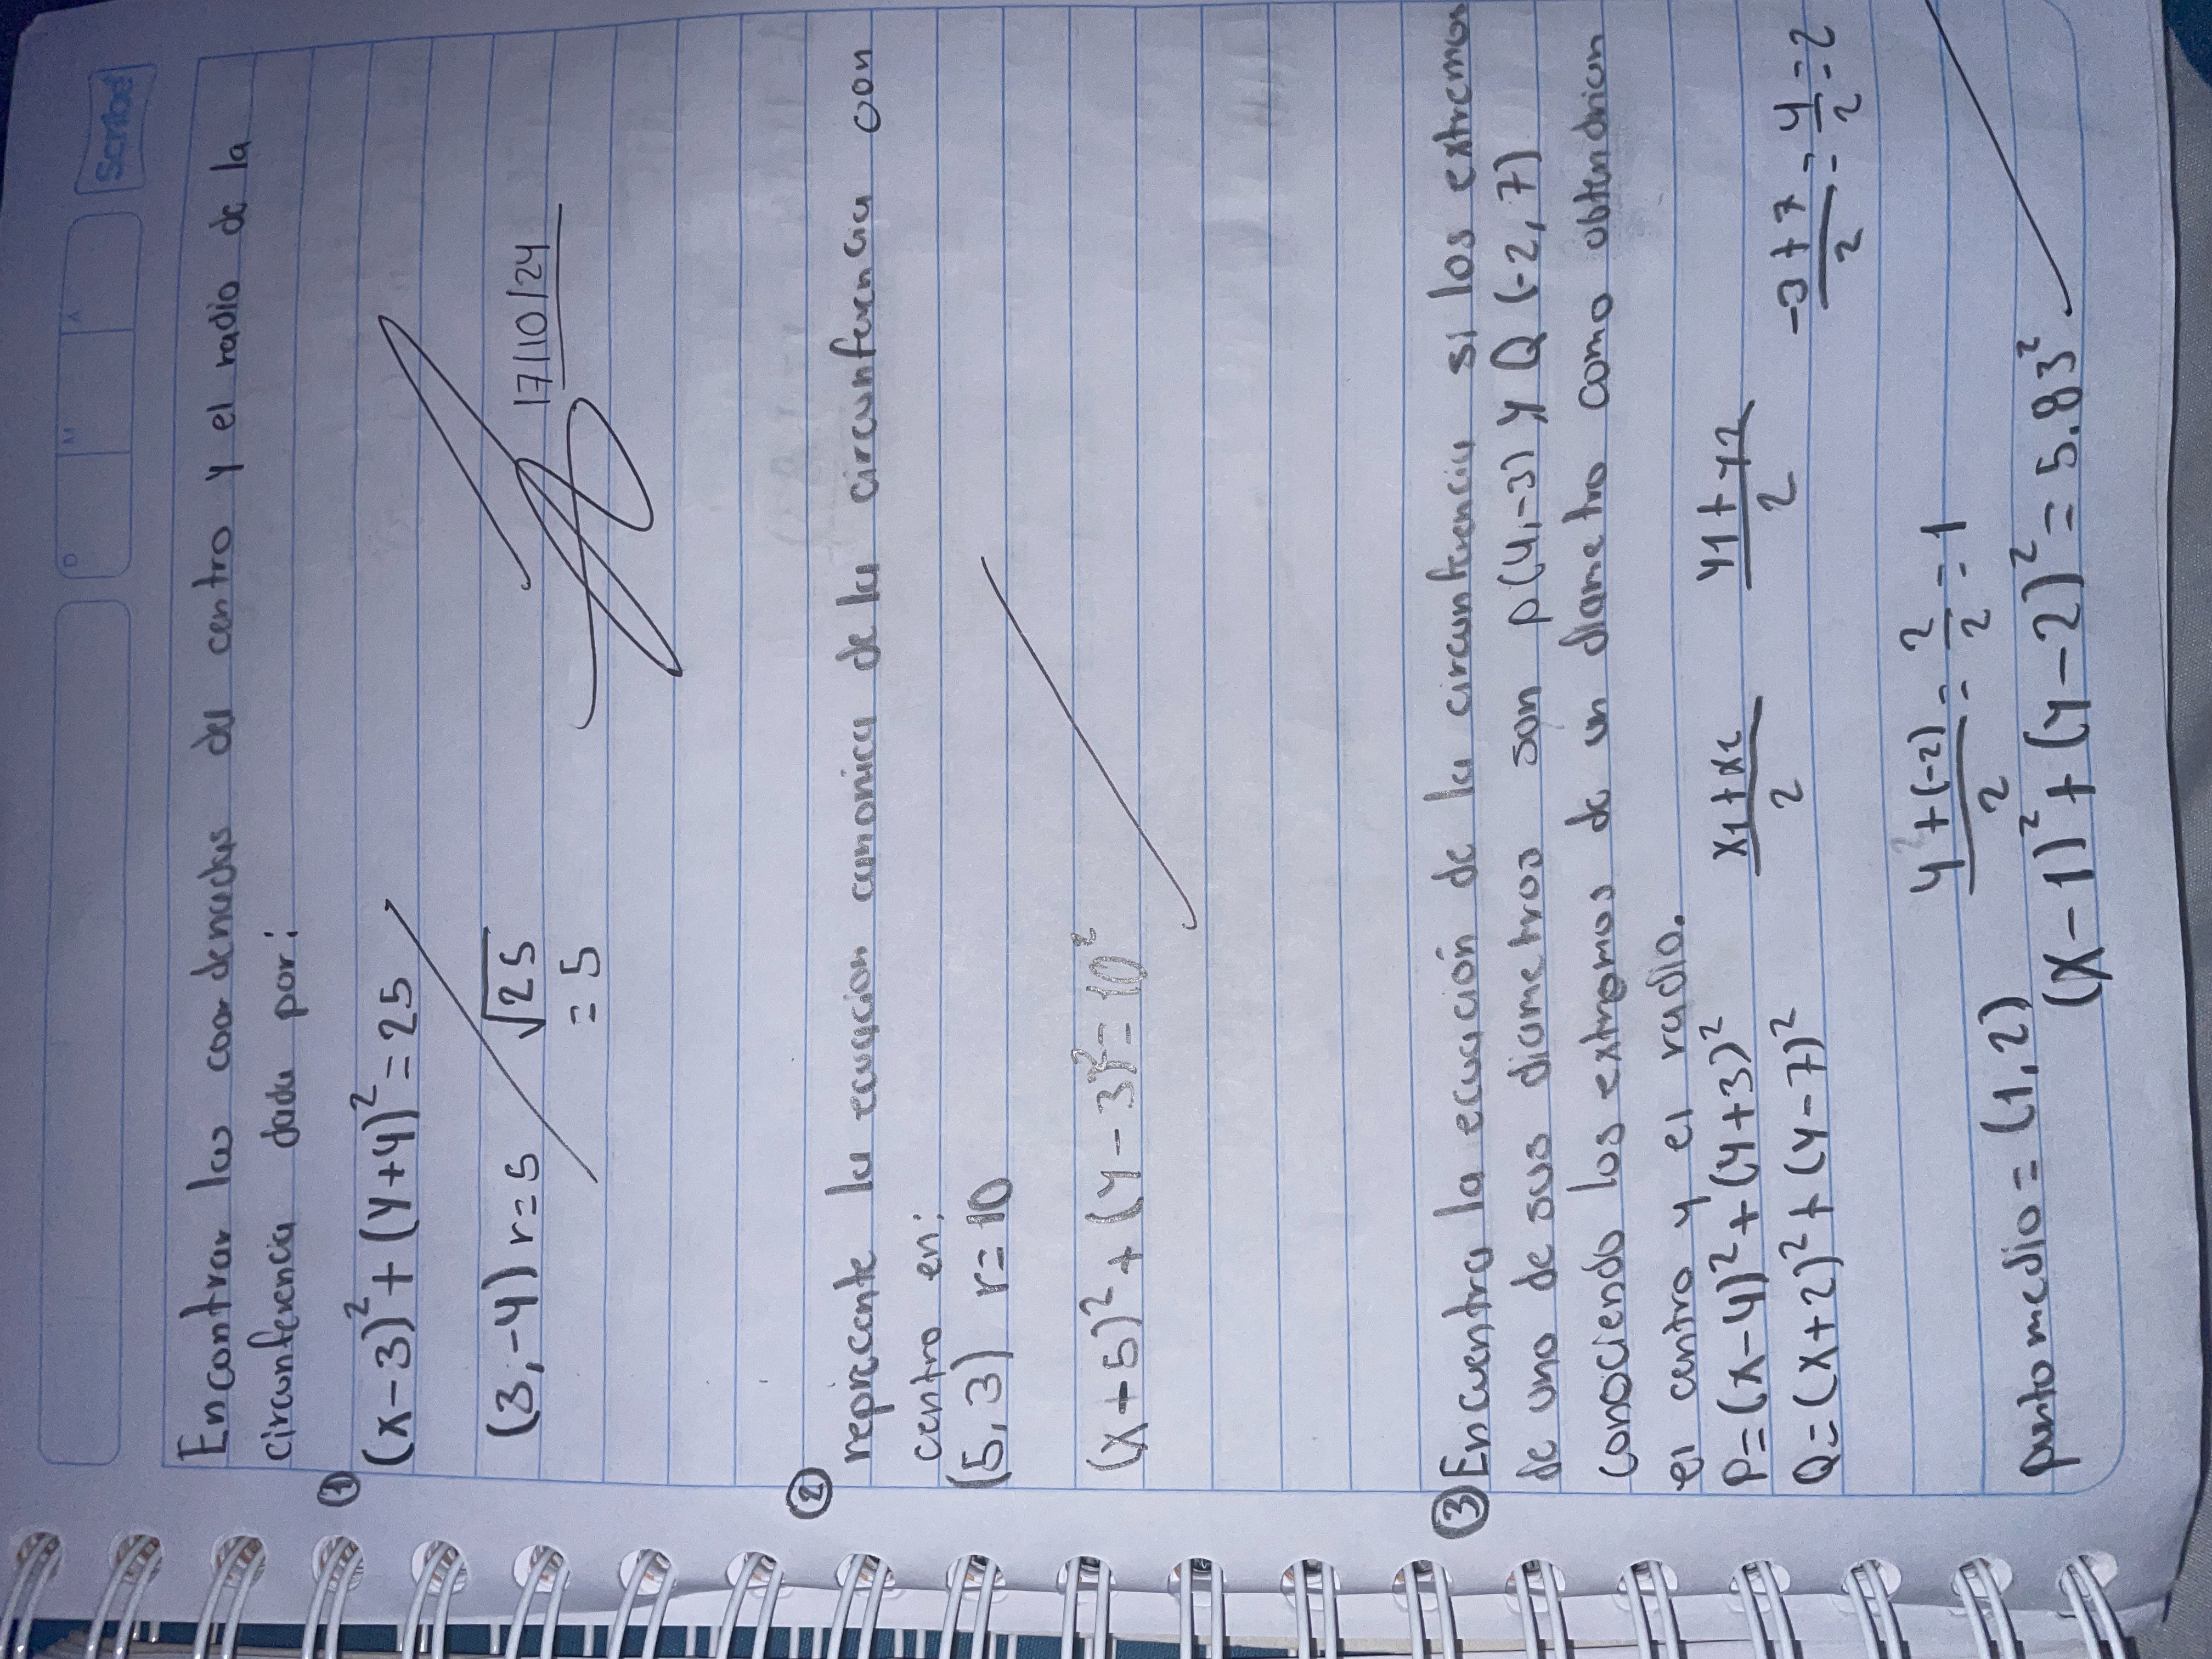 Scribe
D M A
Encontrar las coordenadas del centro y el radio de la
circunferencia dada por:
① (x-3)²+(y+4)²=25
(3,-4) r=5 √25
= 5
17/10/24
② reprecente la ecuacion canonica de la circunferencia con
centro en:
(5,3) r=10
(x+5)²+(y-3)²=10²
③ Encuentra la ecuación de la circunferencia si los extremos
de uno de sus diametros son p(4,-3) y Q(-2,7)
conociendo los extremos de un diametro como obtendrian
el centro y el radio.
P=(x-4)²+(y+3)² x1+x2/2 y1+y2/2
Q=(x+2)²+(y-7)² -3+7/2=4/2=2
4+(-2)/2=2/2=1
punto medio=(1,2)
(x-1)²+(y-2)²=5.83²